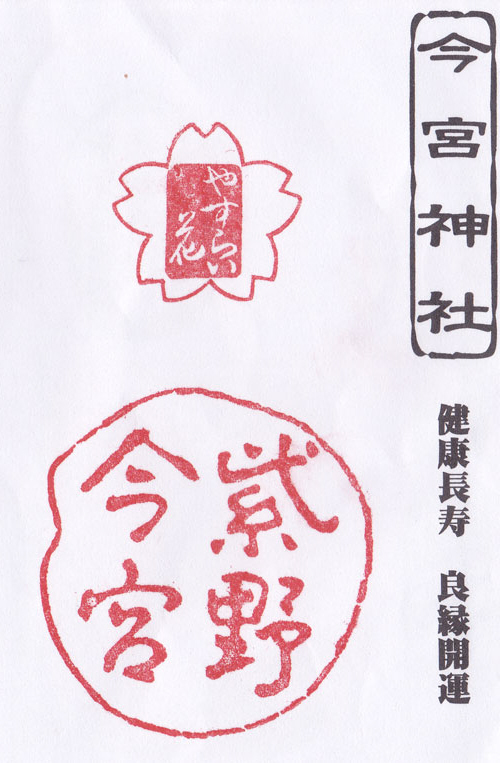 今宮神社
健康長寿 良縁開運
やすらい
花
紫野
今宮